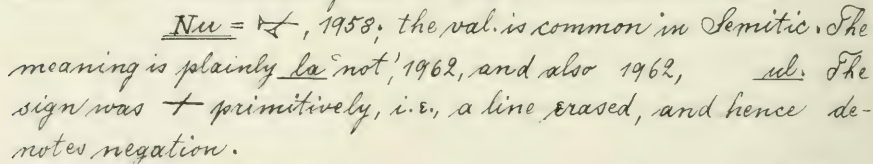 Nu = 𒉡, 1958; the val. is common in Semitic. The
meaning is plainly la "not", 1962, and also 1962, ul. The
sign was + primitively, i.e., a line erased, and hence de-
notes negation.